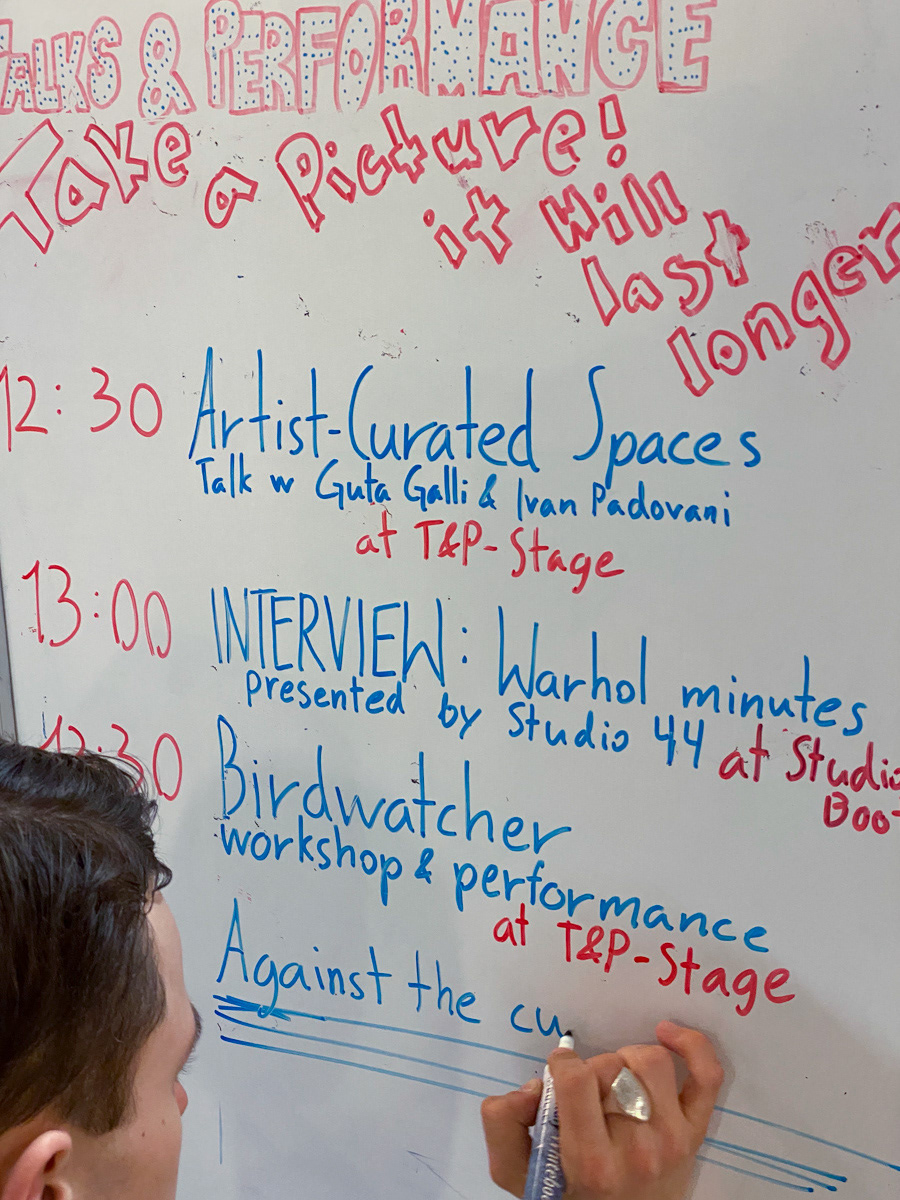 TALKS & PERFORMANCE
Take a Picture!
it Will
last
longer
12:30 Artist-Curated Spaces
Talk w Guta Galli & Ivan Padovani
at T&P-Stage
13:00 INTERVIEW: Warhol minutes
presented by Studio 44 at Studio
Boo
:30 Birdwatcher
workshop & performance
at T&P-Stage
Against the cu